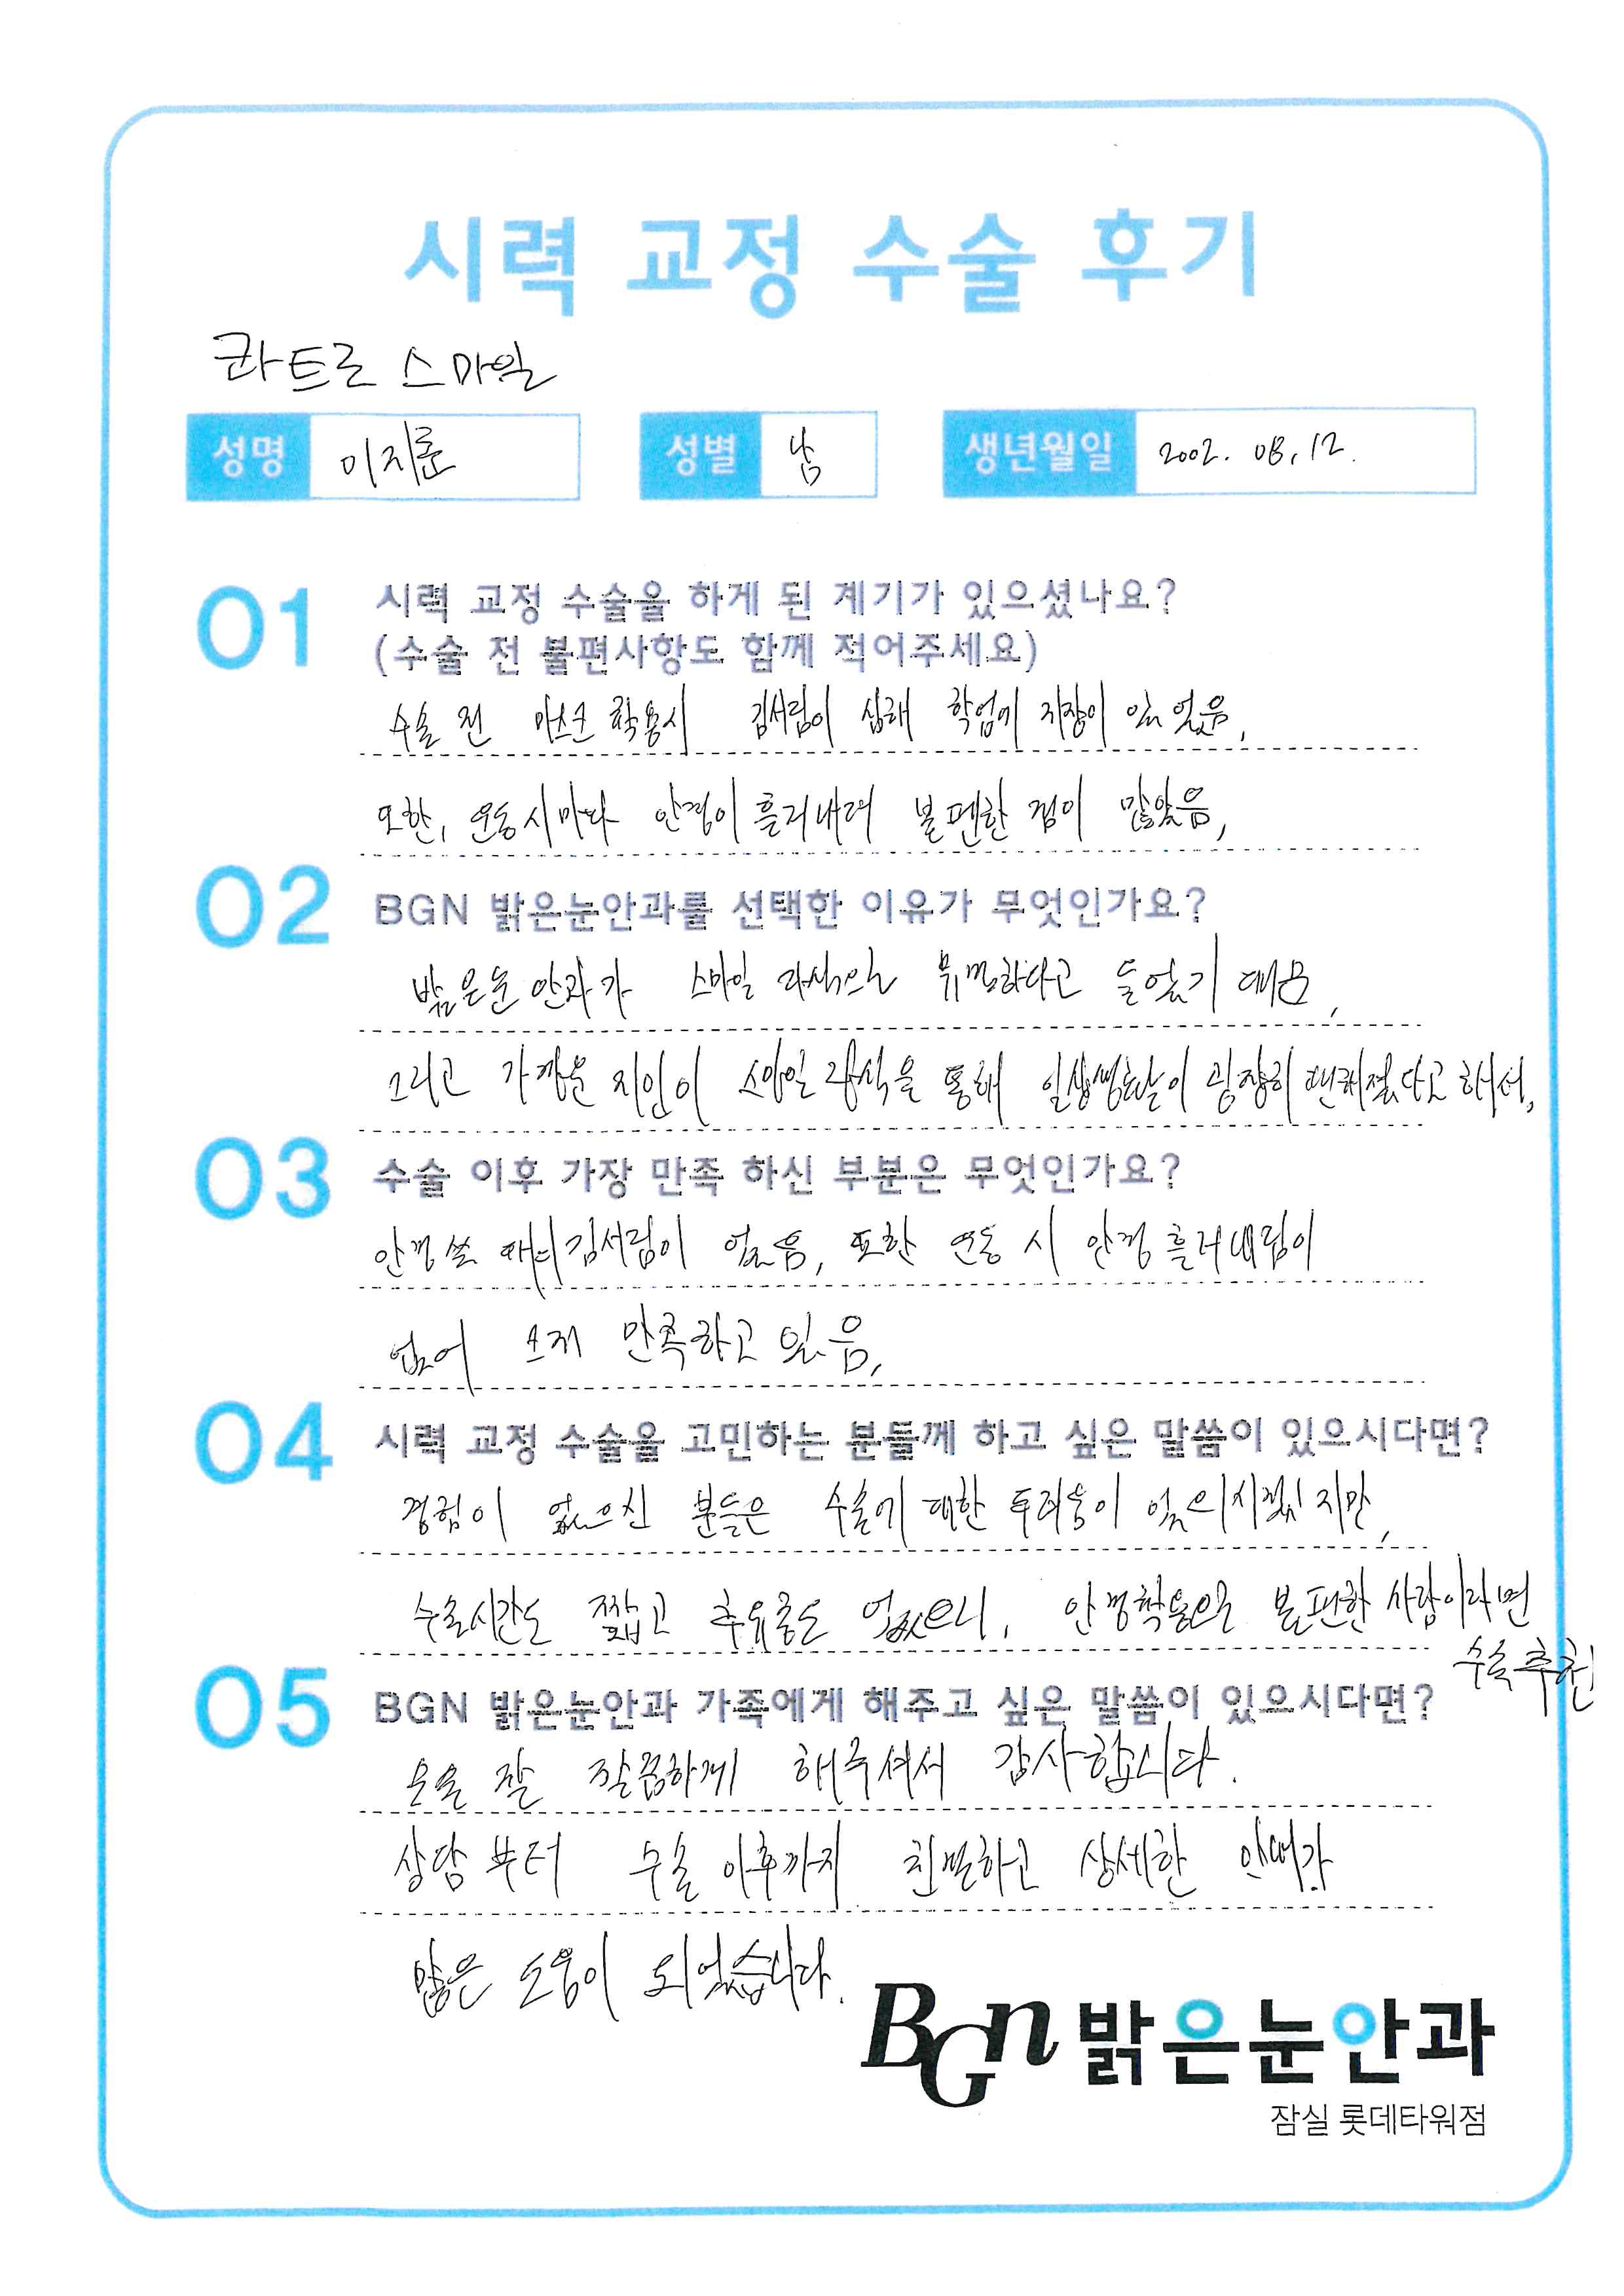 시력 교정 수술 후기
콰트로 스마일
성명 이지훈 성별 남 생년월일 2002. 08. 12.
01 시력 교정 수술을 하게 된 계기가 있으셨나요?
(수술 전 불편사항도 함께 적어주세요)
수술 전 마스크 착용시 김서림이 심해 학업에 지장이 있었음,
또한, 운동시마다 안경이 흘러내려 불편한 점이 많았음,
02 BGN 밝은눈안과를 선택한 이유가 무엇인가요?
밝은눈안과가 스마일 라식으로 유명하다고 들었기 때문,
그리고 가까운 지인이 스마일 라식을 통해 일상생활이 굉장히 편해졌다고 해서,
03 수술 이후 가장 만족 하신 부분은 무엇인가요?
안경 쓸 때의 김서림이 없음, 또한 운동 시 안경 흘러내림이
없어 크게 만족하고 있음,
04 시력 교정 수술을 고민하는 분들께 하고 싶은 말씀이 있으시다면?
경험이 없으신 분들은 수술에 대한 두려움이 있으시겠지만,
수술시간도 짧고 후유증도 없으니, 안경착용으로 불편한 사람이라면
수술추천
05 BGN 밝은눈안과 가족에게 해주고 싶은 말씀이 있으시다면?
수술 잘 깔끔하게 해주셔서 감사합니다.
상담부터 수술 이후까지 친절하고 상세한 안내가
많은 도움이 되었습니다.
BGN 밝은눈안과
잠실 롯데타워점